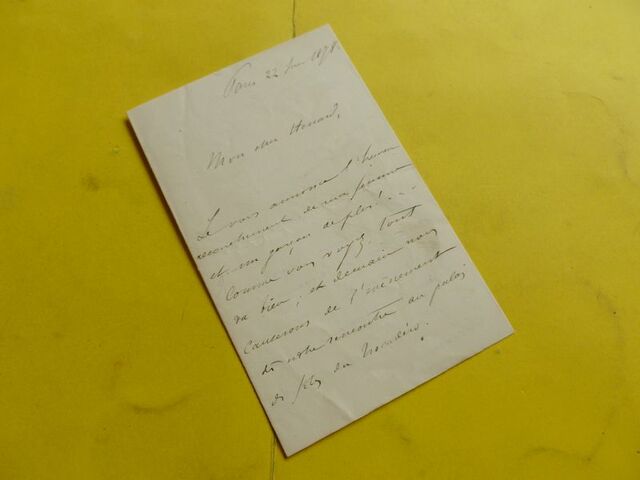 Paris 22 1878.
Mon cher
Je vous annonce l'heureux
accouchement de ma femme
et un garçon de plus! ...
Comme vous voyez tout
va bien; et demain nous
causerons de l'événement
à notre rencontre au palais
du Trocadéro.